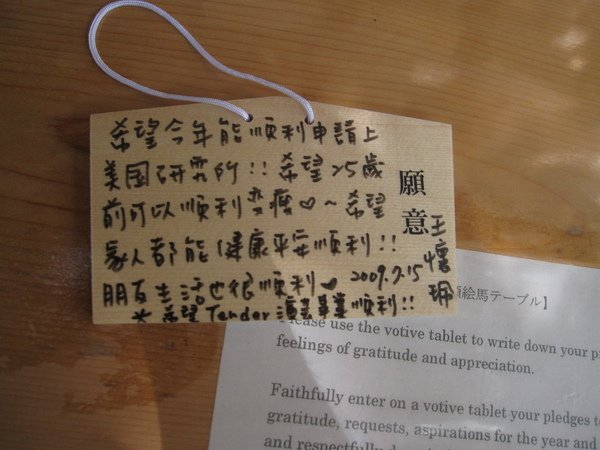 希望今年能順利申請上
美国研究所!! 希望25歲
前可以順利变瘦♡~希望
家人都能健康平安順利!!
朋友生活也很順利♥ 2009.7.15
希望Tender 讀書畢業順利!!
王懷
願意
願絵馬テーブル】
Please use the votive tablet to write down your
feelings of gratitude and appreciation.
Faithfully enter on a votive tablet your pledges
gratitude, requests, aspirations for the year and
and respectfully